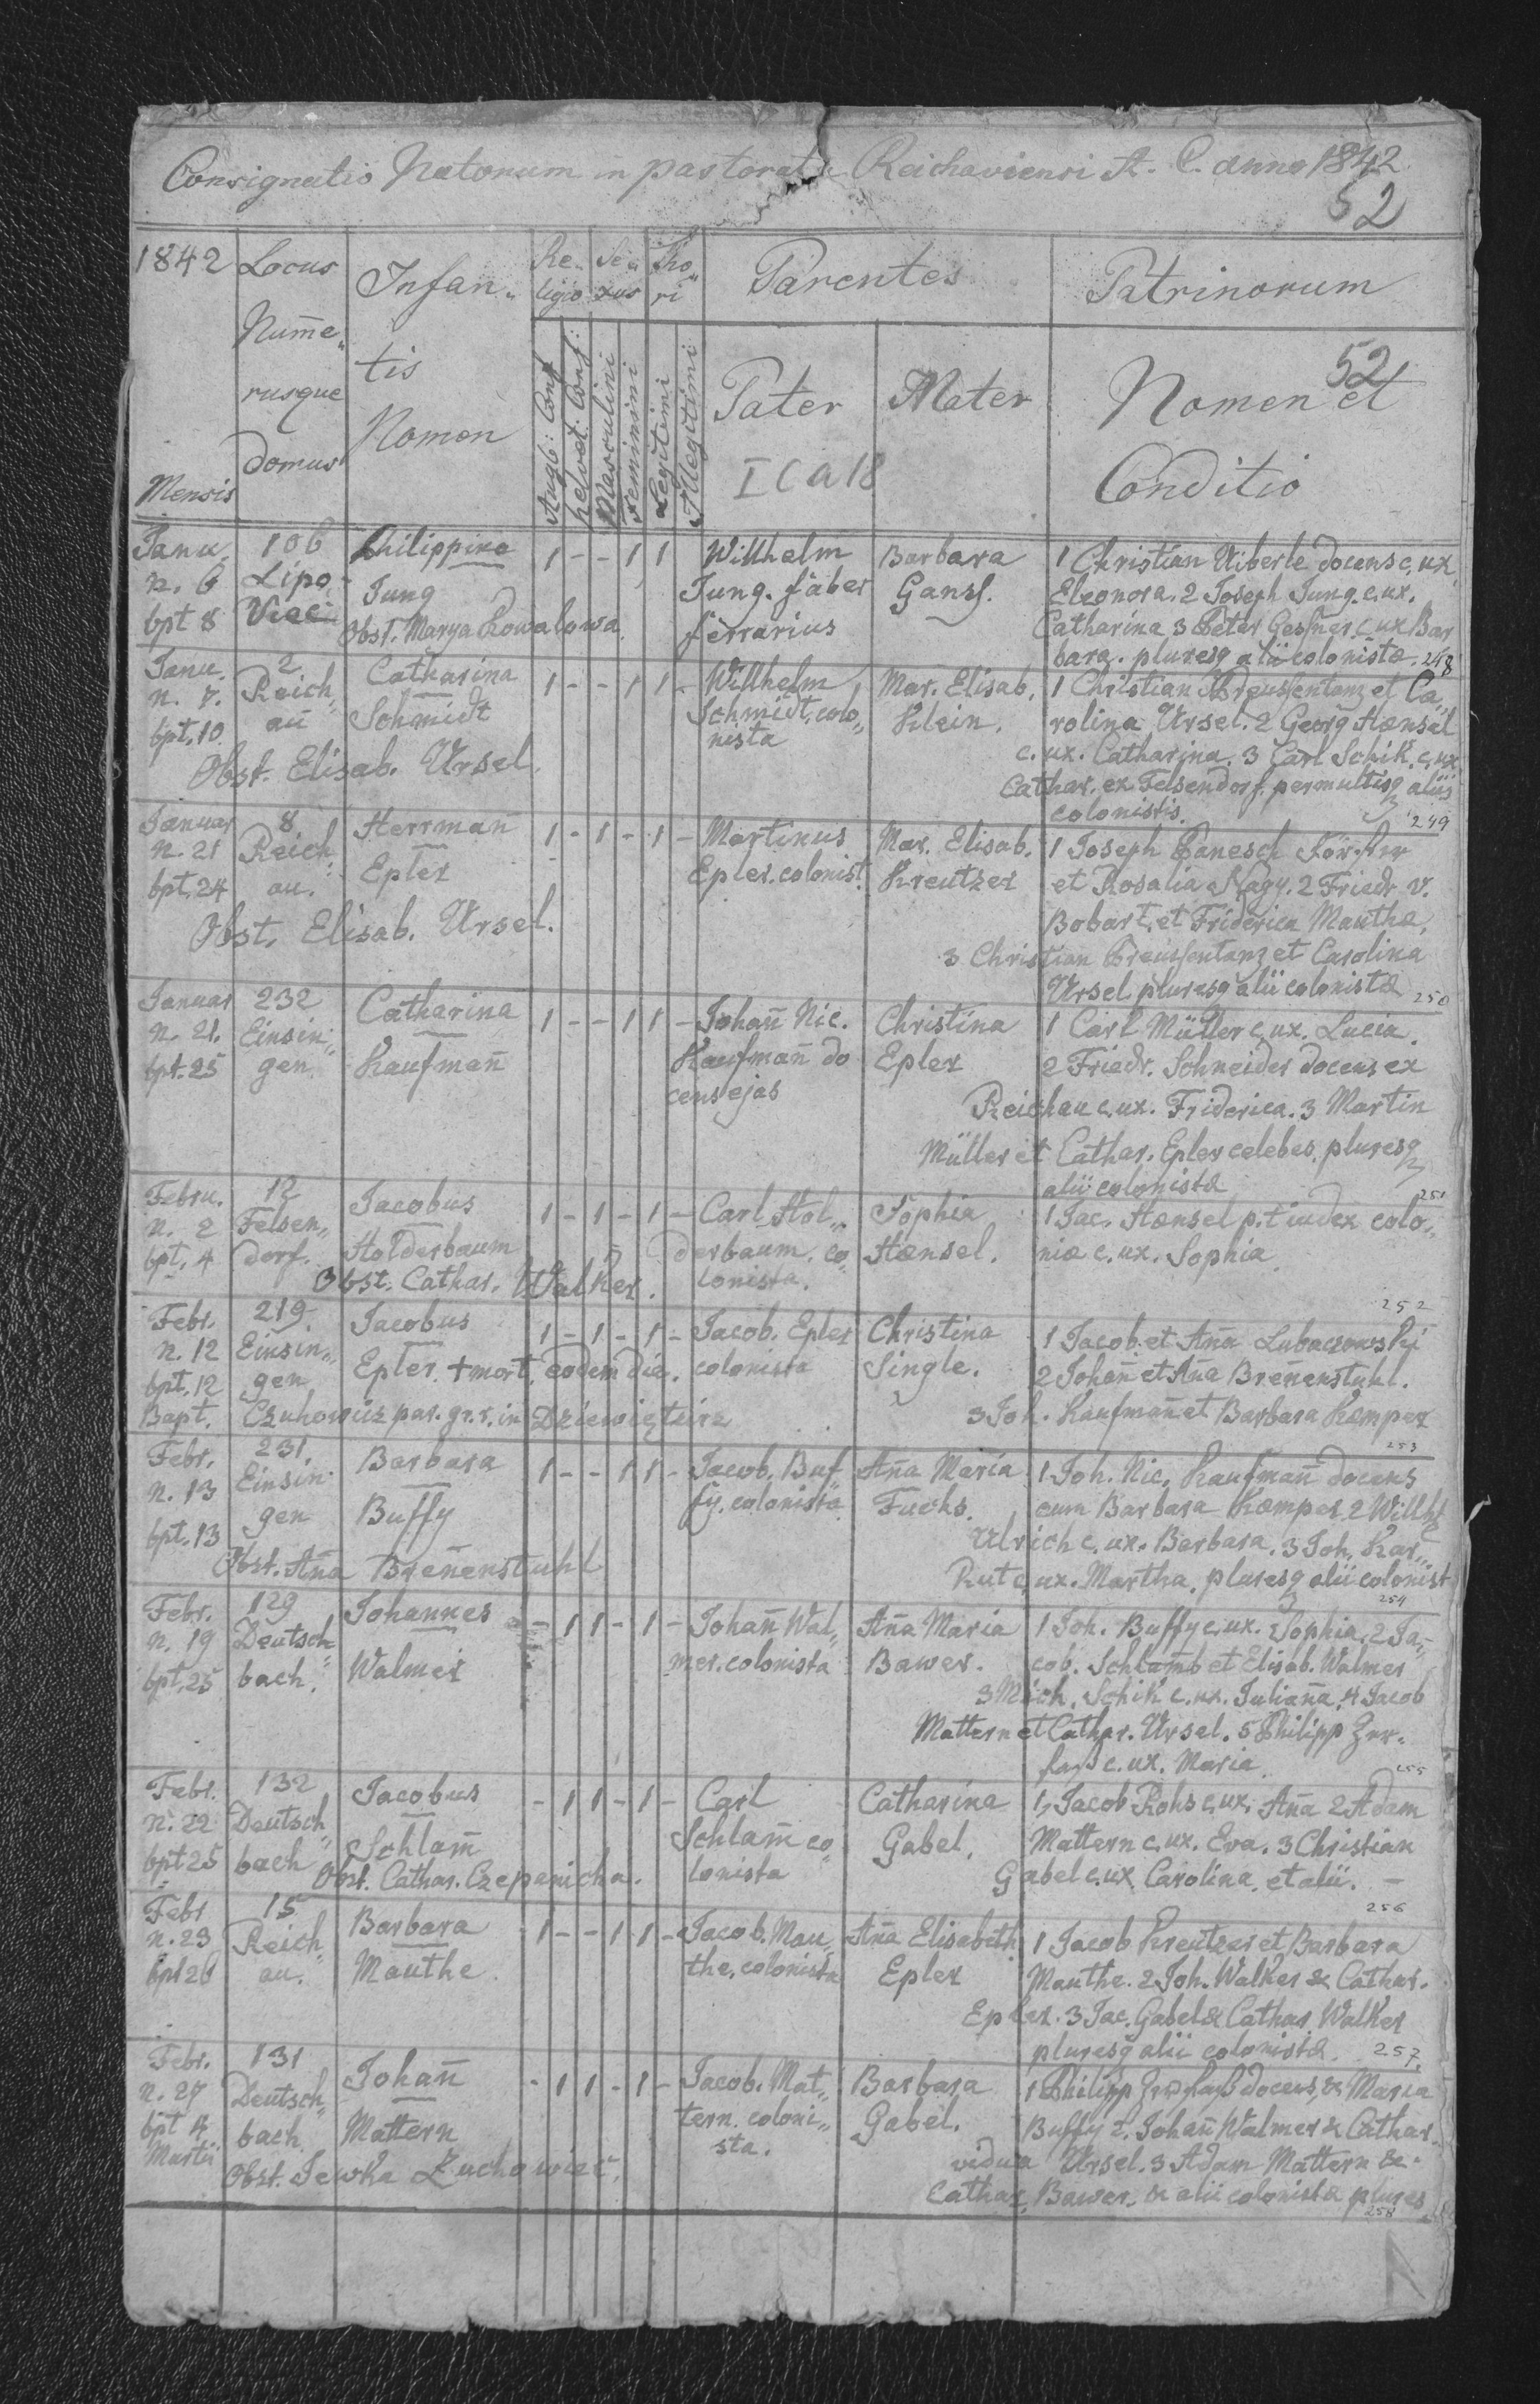 Consignatio Natorum in pastoratu Reichaviensi A. C. anno 1842
52
1842 Locus Numerusque domus
Mensis
Infantis Nomen
Religio
Sexus
Thori
Parentes
Patrinorum
Augb: Conf:
helvet: Conf:
Masculini
Feminini
Legitimi
Illegitimi
Pater
Mater
52
Nomen et
Conditio
I C a 18
Janu. 106 Philippina 1 - - 1 1 Willhelm Barbara 1 Christian Uiberle docens c, ux.
n. 6 Lipo Jung Jung. faber Gansf. Eleonora. 2 Joseph Jung. c. ux.
bpt 8 Viec Obst. Marya Kowalowa. ferrarius Catharina 3 Peter Gesner c ux Bar
bara. pluresq alii colonistæ. 248
Janu. 2 Catharina 1 - - 1 1 - Willhelm Mar. Elisab. 1 Christian Preussentanz et Ca„
n. 7. Reich„ Schmidt Schmidt, colo„ Klein. rolina Ursel. 2 Georg Hænsel
bpt. 10 au nista c. ux. Catharina. 3 Carl Schik. c. ux.
Obst. Elisab. Ursel. Cathar. ex Felsendorf. permultisq aliis
colonistis. 249
Januar 8 Herrman̄ 1 - 1 - 1 - Martinus Mar. Elisab. 1 Joseph Panesch Förster
n. 21 Reich„ Epler Epler. colonist. Kreutzer et Rosalia Nagy. 2 Friedr. v.
bpt. 24 au. Bobart. et Friderica Mauthe,
Obst. Elisab. Ursel. 3 Christian Preussentanz et Carolina
Ursel pluresq alii colonistæ 250
Januar 232 Catharina 1 - - 1 1 - Johan̄ Nic. Christina 1 Carl Müller c, ux. Lucia.
n. 21. Einsin„ Kaufman̄ Kaufman̄ do Epler 2 Friedr. Schneider docens ex
bpt. 25 gen cens ejas Reichau c. ux. Friderica. 3 Martin
Müller et Cathar. Epler celebes. pluresq
alii colonistæ 251
Febru. 12 Jacobus 1 - 1 - 1 - Carl Hol„ Sophia 1 Jac. Hænsel p. t iudex colo„
n. 2 Felsen„ Holderbaum derbaum, co„ Hænsel. niæ c. ux. Sophia
bpt. 4 dorf. Obst. Cathar. Walker. lonista.
252
Febr. 219. Jacobus 1 - 1 - 1 - Jacob. Epler Christina 1 Jacob. et An̄a Lubaczowskj
n. 12 Einsin„ Epler. + mort. eodem die. colonista Single. 2 Johan̄ et An̄a Bren̄enstuhl.
bpt. 12 gen 3 Joh. Kaufman̄ et Barbara Kæmper
Bapt. Czuhowicz par. gr. r. in Dziewięcierz
253
Febr. 231. Barbara 1 - - 1 1 - Jacob. Buf An̄a Maria 1 Joh. Nic. Kaufman̄ docens
n. 13 Einsin„ Buffy fy. colonista Fuchs. cum Barbara Kæmper. 2 Willhl
bpt. 13 gen Ulrich c. ux. Barbara. 3 Joh. Kar„
Obst. An̄a Bren̄enstuhl Rut c, ux. Martha. pluresq alii colonist
254
Febr. 129 Johannes - 1 1 - 1 - Johan̄ Wal„ An̄a Maria 1 Joh. Buffy c. ux. Sophia. 2 Ja„
n. 19 Deutsch„ Walmer mer. colonista Bawer. cob. Schlam̄b et Elisab. Walmer
bpt. 25 bach. 3 Mich. Schik c. ux. Julian̄a. 4 Jacob
Mattern et Cathar. Ursel. 5 Philipp Zer„
faß c. ux. Maria 255
Febr. 132 Jacobus - 1 1 - 1 - Carl Catharina 1, Jacob Rohs c, ux, An̄a 2 Adam
n. 22 Deutsch„ Schlam̄ Schlam̄ co„ Gabel. Mattern c. ux. Eva. 3 Christian
bpt 25 bach Obst. Cathar. Czepanicha. lonista Gabel c. ux. Carolina, et alii. -
256
Febr 15 Barbara 1 - - 1 1 - Jacob. Mau„ An̄a Elisabeth 1 Jacob Kreutzer et Barbara
n. 23 Reich„ Mauthe. the, colonista Epler Mauthe. 2 Joh. Walker & Cathar.
bpt 26 au. Epler. 3 Jac. Gabel & Cathar. Walker
pluresq alii colonistæ. 257.
Febr. 131 Johan̄ - 1 1 - 1 - Jacob. Mat„ Barbara 1 Philipp Zerfaß docens, & Maria
n. 27 Deutsch„ Mattern tern. coloni„ Gabel. Buffy 2. Johan̄ Walmer & Cathar.
bpt 4 bach sta. vidua Ursel. 3 Adam Mattern &.
Martii Obst. Jewka Zuchowiec. Cathar. Bawer. & alii colonistæ plures
258